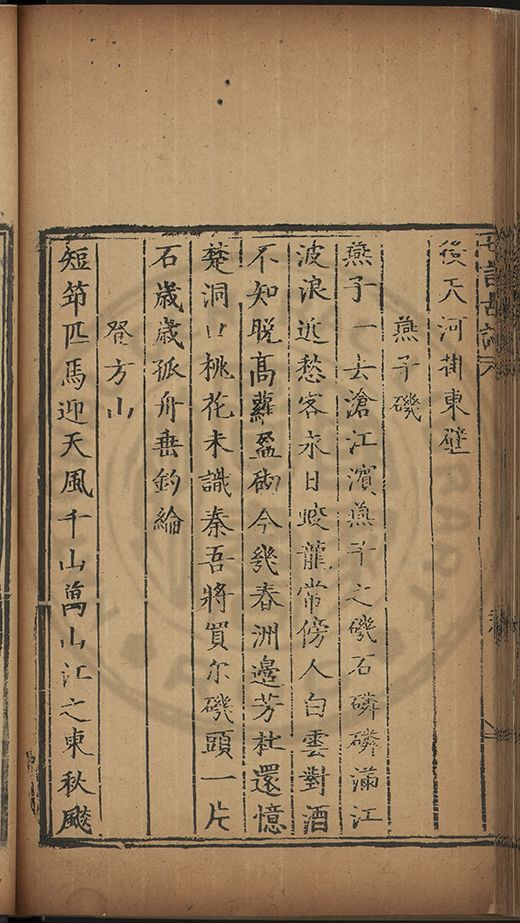 後天河街東壁
燕子磯
燕子一去滄江濱燕子之磯石磷磷滿江
波浪近愁客永日蛟龍常傍人白雲對酒
不知晚高蘿盈砌今幾春洲邊芳杜還憶
楚洞口桃花未識秦吾將買尔磯頭一片
石歲歲孤舟垂釣綸
登方山
短筇匹馬迎天風千山萬山江之東秋颷